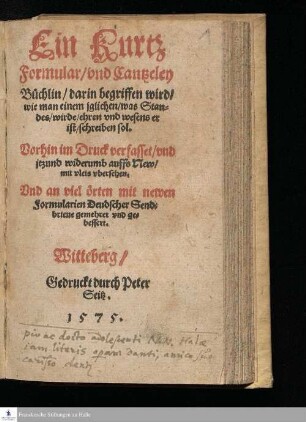 1
Ein Kurtz
Formular/vnd Cantzeley
Büchlin/darin begriffen wird/
wie man einem jglichen/was Stan-
des/wirde/ehren vnd wesens er
ist/schreiben sol.
Vorhin im Druck verfasset/vnd
jtzund widerumb auffs New/
mit vleis vbersehen.
Vnd an viel örten mit newen
Formularien Deudscher Send-
brieue gemehret vnd ge-
bessert.
Witteberg/
Gedruckt durch Peter
Seitz.
1575.
pio ac docto adolescenti
iam literis operam danti, amico suo
Franckesche Stiftungen zu Halle